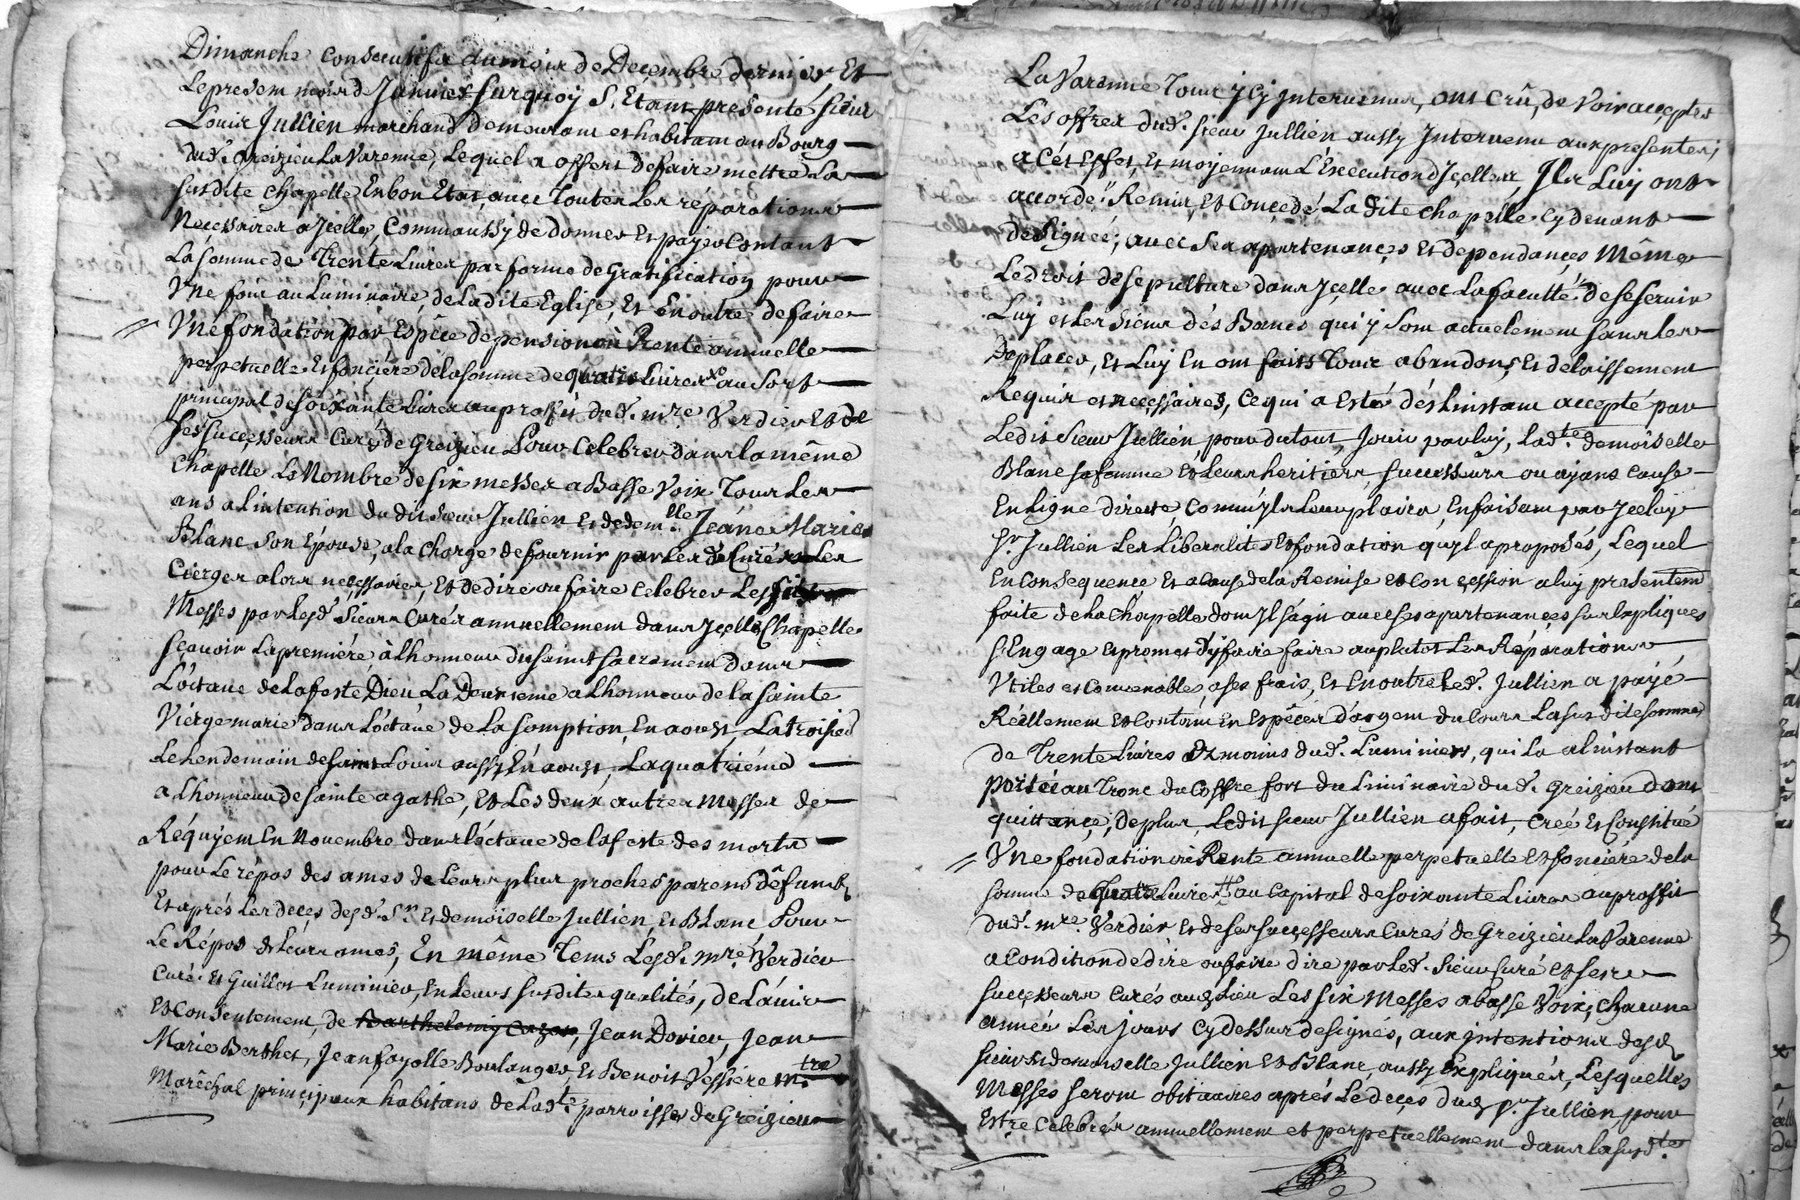 Dimanche consecutifs du mois de Decembre dernier Et
Le present mois d Janvier surquoy S. Etant presenté sieur
Louis Jullien marchand demeurant et habitant au Bourg
dud. Greizieu La Varenne, Lequel a offert de faire mettre La
susdite chapelle En bon Etat, avec Toutes Les réparations
Necessaires a Icelle, Comm aussy de donner Et payer Contant
La somme de Trente Livres par forme de Gratification pour
Une fois au Luminaire, de La dite Eglise, Et En outre de faire
Une fondation par Espêce de pension où Rente annuelle
perpetuelle Et fonciére de la somme de quatre Livres au sort
principal de soixante Livres au proffit dud. mre. Verdier Et de
ses successeurs Curés de Greizieu Pour Celebrer dans la même
Chapelle Le Nombre de six messes a Basse Voix Tous Les
ans a L intention du dit sieur Jullien Et de demlle Jeáne Marie
Blanc son Epouse, a la Charge de fournir par Les d. Curés Les
Cierges alors necessaires, Et de dire ou faire Celebrer Les
Messes par Lesd. sieurs Curés annuellement dans Icelle Chapelle
sçavoir La premiére à L honneur du saint sacrement dans
L'octave de La feste Dieu La Deuxieme a L honneur de la sainte
Vierge marie dans L'octave de La somption En aoust La troisie
Le Lendemain de saint Louis aussy En aoust, La quatriéme
a L honneur de sainte agathe, Et Les deux autres Messes de
Réquiem En Novembre dans L'octave de La feste des morts
pour Le répos des ames de Leurs plus proches parens défunts
Et aprés Les deces desd. Sr. Et demoiselle Jullien, Et Blanc Pour
Le Répos de Leurs ames, En même Tems Lesd. mre. Verdier
Curé Et Guillot Luminier, En Leurs susdites qualités, de L'avis
Et Consentement, de Barthelemy Cazot, Jean Dorier, Jean
Marie Berthet, Jean fayolle Boulanger, Et Benoit Vessiére mtre
Maréchal principaux habitans de Ladte. parroisse de Greizieu
La Varenne Tous Icy Intervenus, ont Crû, devoir accepter
Les offres dud. sieur Jullien aussy Intervenu aux presentes,
a Cét Effet, Et moyennant L'Execution d'Icelles, Ils Luy ont
accordé Remis, Et Concedé La dite chapelle Cy devant
designée, avec ses apartenances Et dependances Même
Le droit de sepulture dans Icelle avec La faculté de se servir
Luy et Les sieurs dés Bancs qui y sont actuelement sans Les
Deplacer, Et Luy En ont faits Tous abandons, Et delaissement
Requis et necessaires, Ce qui a Eté dés L instant accepté par
Ledit sieur Jullien pour du tout, Jouir par luy, Ladte. demoiselle
Blanc sa femme Et Leurs heritiers, successeurs ou ayans Cause
En Ligne directe, Comm'yls Leur plaira, En faisant par Iceluy
Sr. Jullien Les Liberalités Et fondation qu'yl a proposés, Lequel
En Consequence Et a Cause de la Remise et Concession a luy presentemt
faite de La Chapelle dont Il s'agit avec ses apartenances sus Expliquées
s'Engage Et promet d'y faire faire au plutot Les Réparations
Utiles et Convenables, a ses frais, Et En outre Led. Jullien a payé
Réellement Et Contant En Espéces d'argent du Cours La susdite somme
de Trente Livres Ez mains dud. Luminier, qui La a L instant
portée au Tronc du Coffre fort du Liminaire dud. Greizieu dont
quittance, De plus, Ledit sieur Jullien a fait, Creé Et Constitué
Une fondation où Rente annuelle perpetuelle Et fonciére de la
somme de quatre Livres au Capital de soixante Livres au proffit
dud. mre. Verdier Et de ses successeurs Curés de Greizieu La Varenne
a Condition de dire ou faire dire par Led. sieur Curé Et ses
successeurs Curés aud Lieu Les six Messes a basse Voix, chacune
année Les jours Cy dessus designés, aux intentions desd
sieur Et demoiselle Jullien Et Blanc, aussy Expliqués, Lesquelles
Messes seront obituaires aprés Le deces dud Sr. Jullien pour
Estre Celebrés annuellement et perpetuellement dans La susdte.